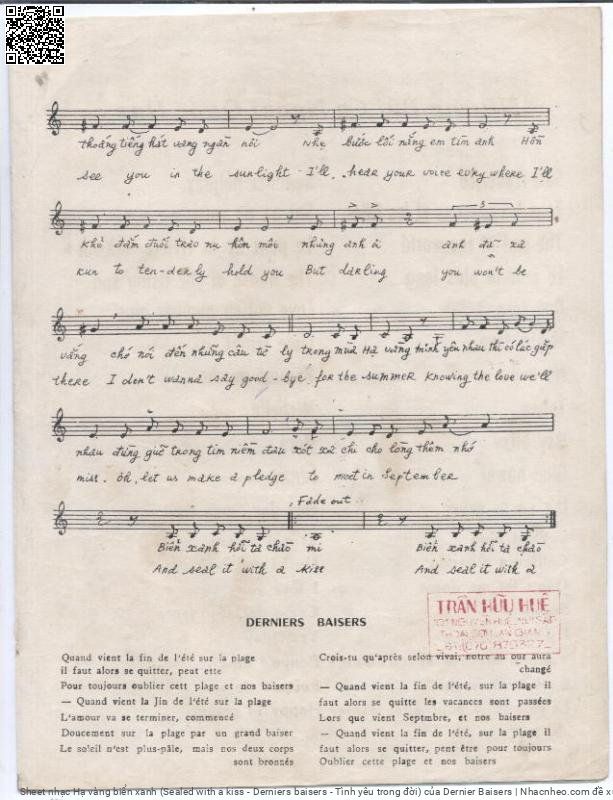 thoáng tiếng hát vang ngần nơi Nhẹ bước lối nắng em tìm anh Hồn
see you in the sunlight I'll hear your voice ev'ry where I'll
khờ đắm đuối trao nụ hôn môi nhưng anh ơi anh đã xa
run to ten-derly hold you But darling you won't be
vắng chớ nói đến những câu từ ly trong mùa Hạ vàng mình yêu nhau thì có lúc gặp
there I don't wanna say good-bye for the summer knowing the love we'll
nhau đừng giữ trong tim niềm đau xót xa chi cho lòng thêm nhớ
miss. oh, let us make a pledge to meet in September
Fade out
Biển xanh hỡi ta chào mi Biển xanh hỡi ta chào
And seal it with a kiss And seal it with a
TRẦN HỮU HUẾ
DERNIERS BAISERS
Quand vient la fin de l'été sur la plage
il faut alors se quitter, peut ette
Pour toujours oublier cette plage et nos baisers
— Quand vient la Jin de l'été sur la plage
L'amour va se terminer, commencé
Doucement sur la plage par un grand baiser
Le soleil n'est plus-pâle, mais nos deux corps
sont bronnés
Crois-tu qu'après selon vivai, notre au our aura
changé
— Quand vient la fin de l'été, sur la plage il
faut alors se quitte les vacances sont passées
Lors que vient Septmbre, et nos baisers
— Quand vient la fin de l'été, sur la plage il
faut alors se quitter, pent être pour toujours
Oublier cette plage et nos baisers
Sheet nhạc Hạ vàng biển xanh (Sealed with a kiss - Derniers baisers - Tình yêu trong đời) của Dernier Baisers | Nhacnheo.com đề x